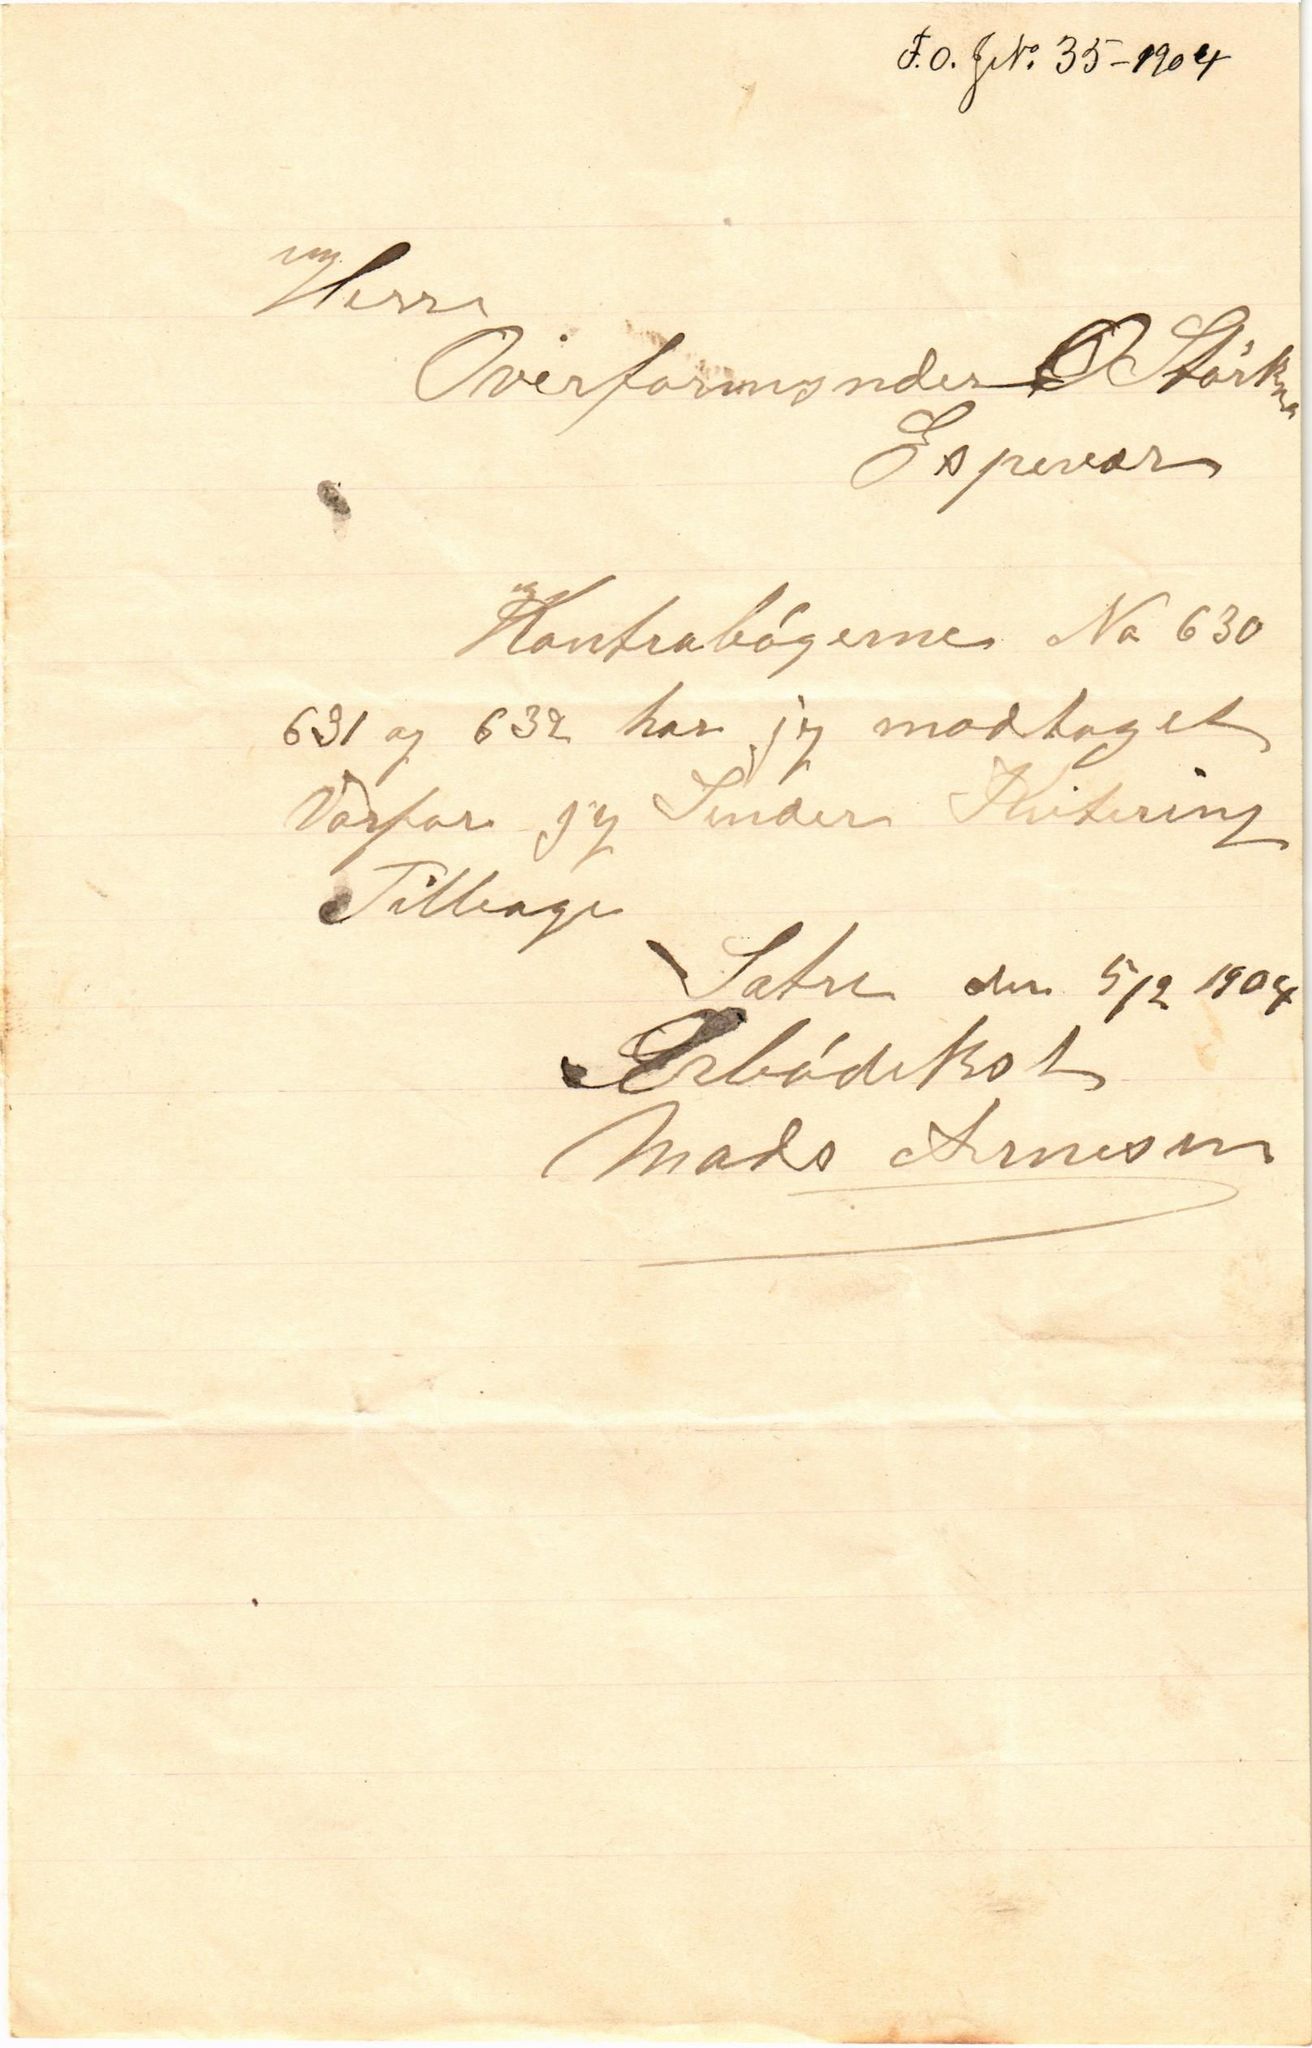 F.O. J.No. 35-1904
Herr
Overformynder O Størkra
Espevær
Kontrabøgerne No 630
631 og 632 har jeg modtaget
Vorfor jeg Sender Kvitering
Tilbage
Satre den 5/2 1904
Ærbødikst
Mads Arnesen